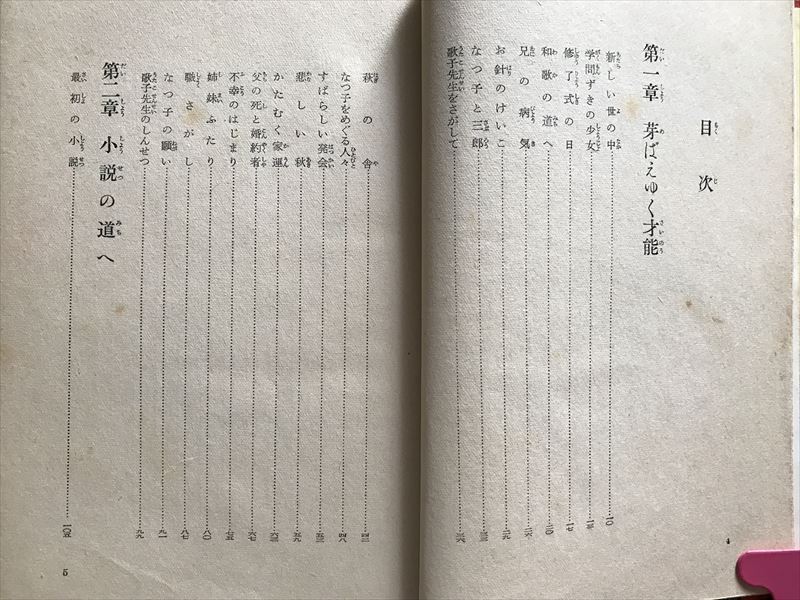 目次
第一章 芽ばえゆく才能
新しい世の中 一〇
学問ずきの少女
修了式の日 一七
和歌の道へ 二〇
兄の病気 二六
お針のけいこ 二九
なつ子と三郎 三三
歌子先生をさがして 三六
4
萩の舎 四三
なつ子をめぐる人々 四八
すばらしい発会 五三
悲しい秋 五九
かたむく家運 六三
父の死と婚約者 六七
不幸のはじまり 七五
姉妹ふたり 八〇
職さがし 八七
なつ子の願い 九一
歌子先生のしんせつ 九九
第二章 小説の道へ
最初の小説 一〇五
5